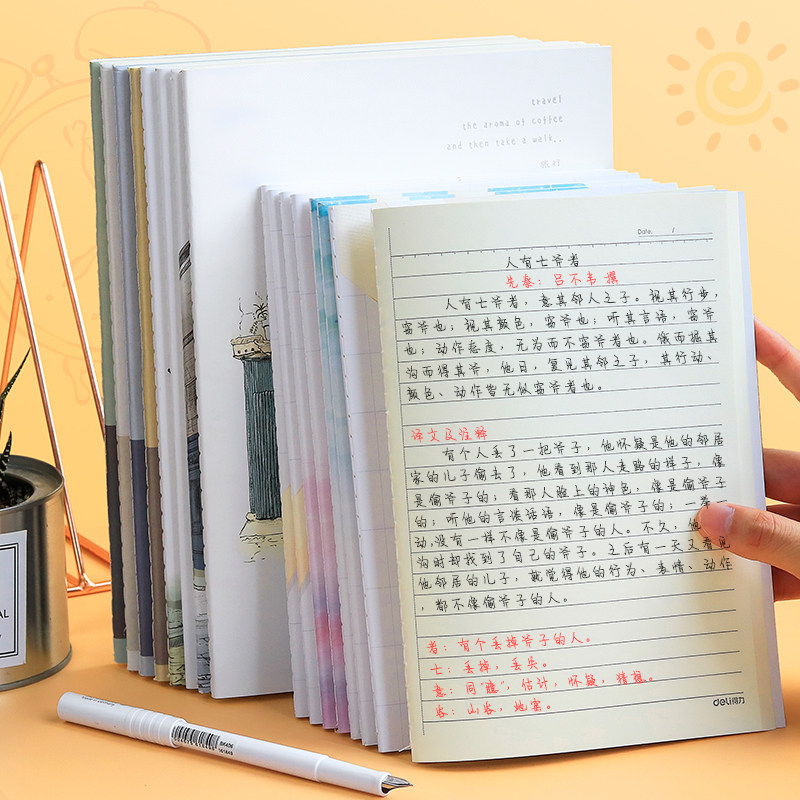 travel
the aroma of coffee
and then take a walk..
Date.      /
人有七斧者
先秦：吕不韦 撰
人有七斧者，意其邻人之子。视其行步，
窃斧也；视其颜色，窃斧也；听其言语，窃斧
也；动作态度，无为而不窃斧者也。俄而掘其
沟而得其斧，他日，复见其邻之子，其行动、
颜色、动作皆无似窃斧者也。
译文及注释
有个人丢了一把斧子，他怀疑是他的邻居
家的儿子偷去了，他看到那人走路的样子，像
是偷斧子的；看那人脸上的神色，像是偷斧子
的；听他的言谈话语，像是偷斧子的，一举一
动，没有一样不像是偷斧子的人。不久，他
沟时却找到了自己的斧子。之后有一天又看见
他邻居的儿子，就觉得他的行为、表情、动作
，都不像偷斧子的人。
者：有个丢掉斧子的人。
七：丢掉，丢失。
意：同“臆”，估计，怀疑，猜想。
谷：山谷，地窖。
deli得力